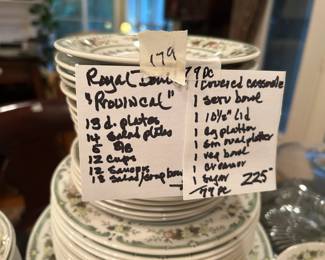 179
Royal Doul
"Provincal"
13 d. plates
14 salad plates
5 B/B
12 cups
12 saucers
13 salad/soup bowl
79 pc
1 covered casserole
1 serv bowl
1 10½" lid
1 lg platter
1 sm oval platter
1 veg bowl
1 creamer
1 sugar
79 pc 225-